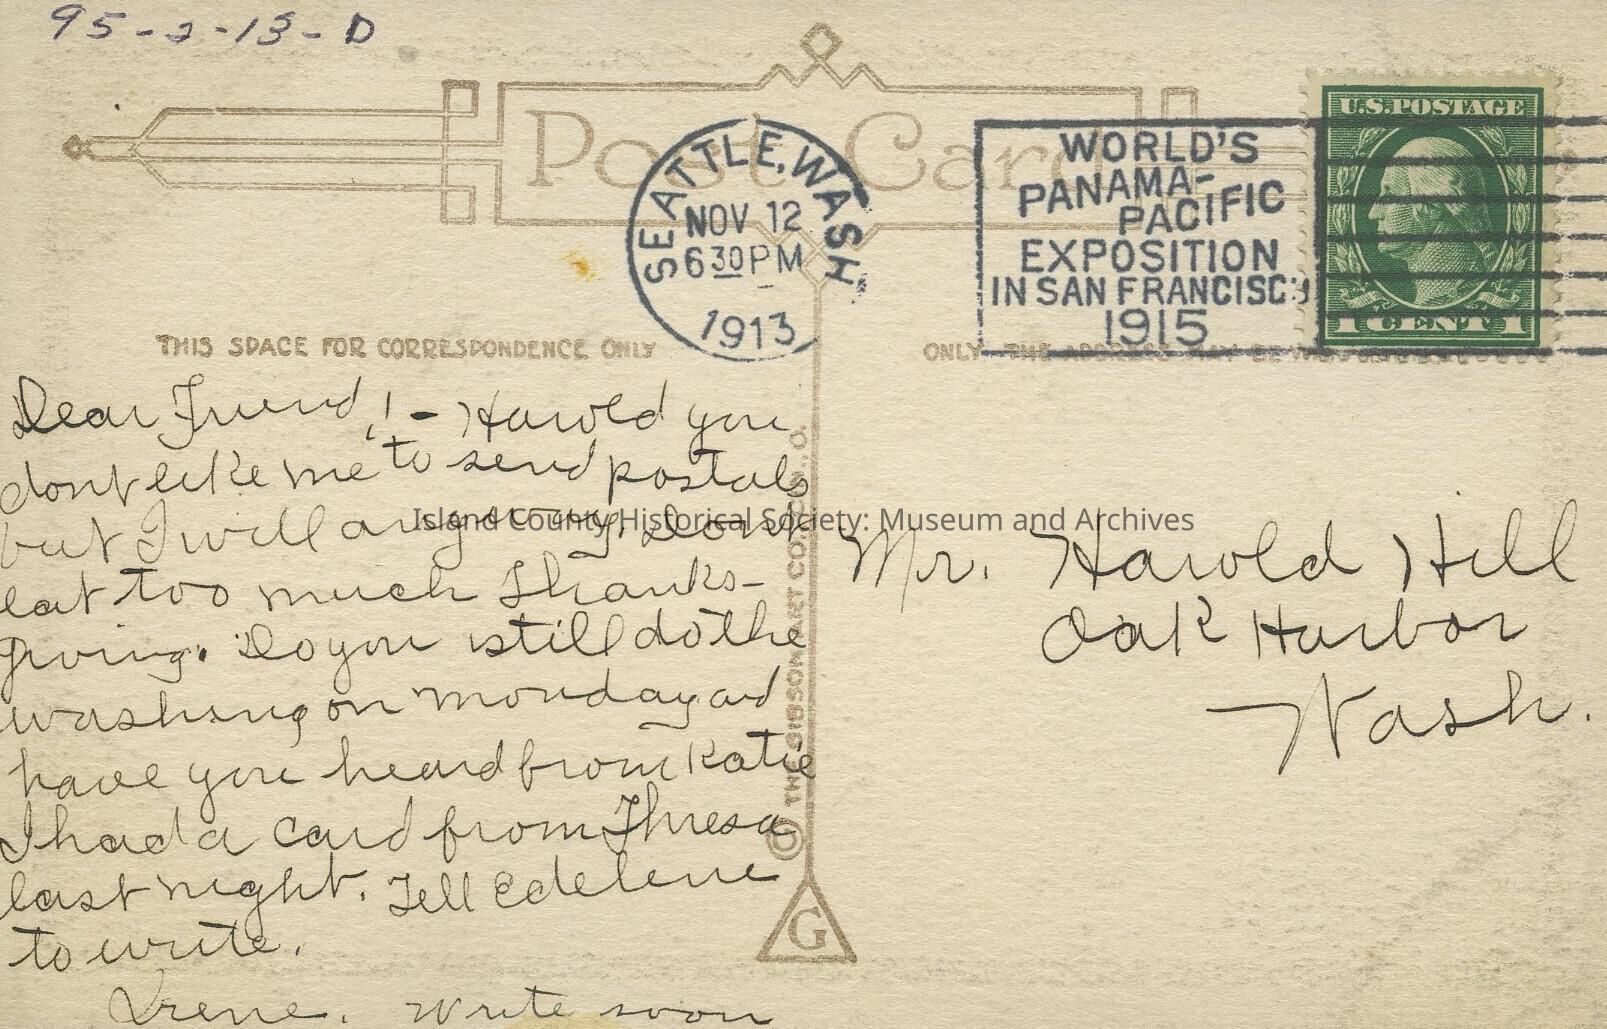 95-2-13-D
Post Card
SEATTLE, WASH
NOV 12
630PM
1913
WORLD'S
PANAMA-
PACIFIC
EXPOSITION
IN SAN FRANCISCO
1915
U.S. POSTAGE
1 CENT 1
THIS SPACE FOR CORRESPONDENCE ONLY
ONLY THE ADDRESS MAY BE
Dear Friend,! - Harold you
dont like me to send postals
but I will anyway. Dont
eat too much Thanks-
giving. Do you still do the
washing on monday and
have you heard from Katie
I had a card from Thresa
last night. Tell Edelene
to write.
Irene. Write soon
Mr. Harold Hill
Oak Harbor
Wash.
© THE GIBSON ART CO. CIN., O.
G
Island County Historical Society: Museum and Archives